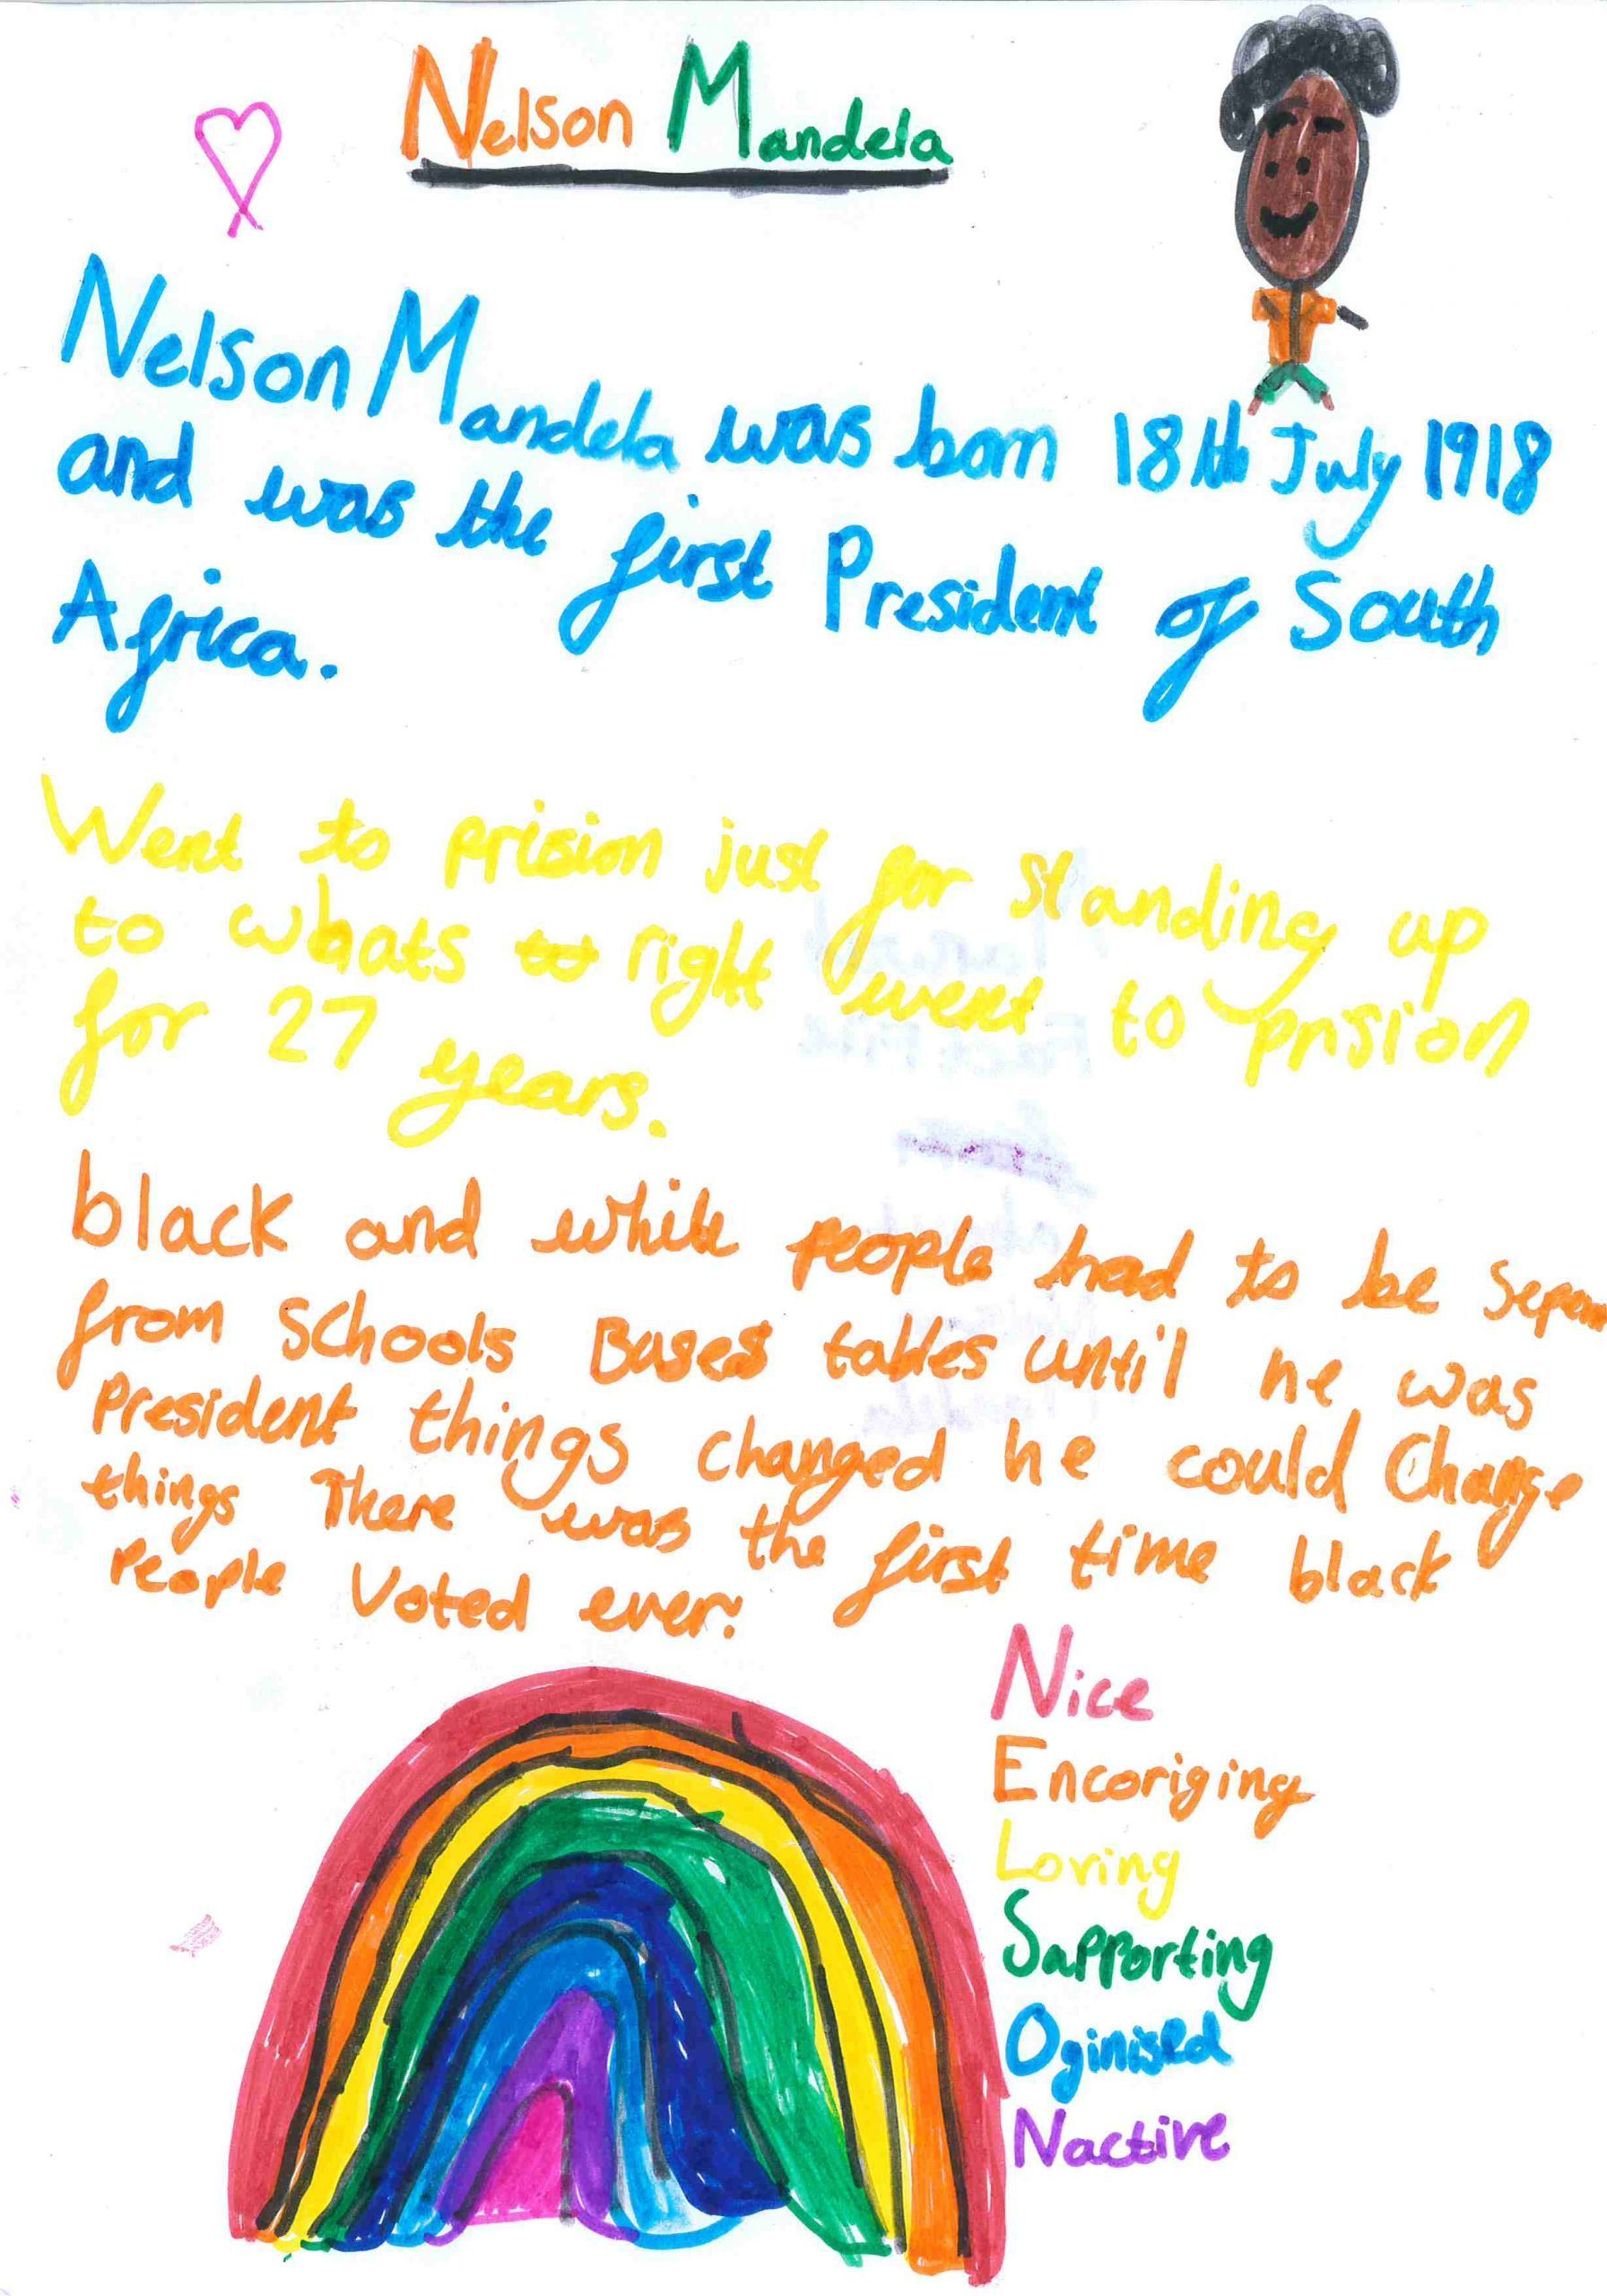 Nelson Mandela
Nelson Mandela was born 18th July 1918
and was the first President of South
Africa.
Went to prision just for standing up
to whats right went to prision
for 27 years.
black and white people had to be separ
from schools Buses tables until he was
President things changed he could Change
things There was the first time black
People Voted ever!
Nice
Encoriging
Loving
Supporting
Oginised
Nactive